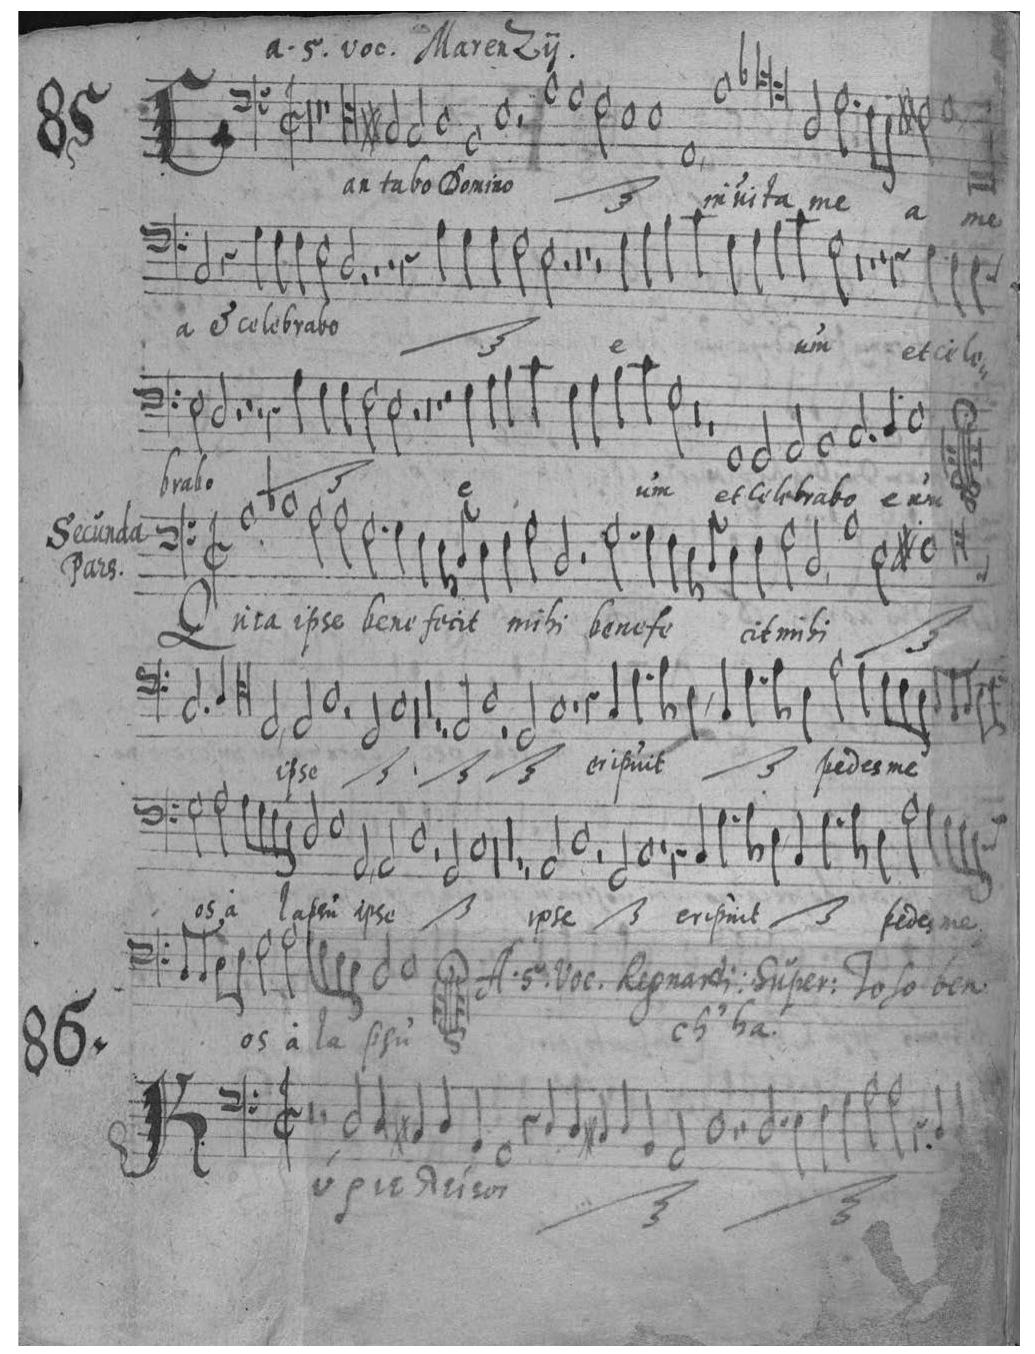 a. 5. voc. Marenzij.
85
Cantabo Domino in uita me a me
a & celebrabo e um et cele
brabo e um et celebrabo e um
Secunda
Pars.
Quia ipse benefecit mihi benefe cit mihi
ipse eripuit pedes me
os à lapsu ipse ipse eripuit pedes me
A. 5. Voc. Regnardi: Super: Io so ben
os à la psu ch' ha.
86.
Κύριε